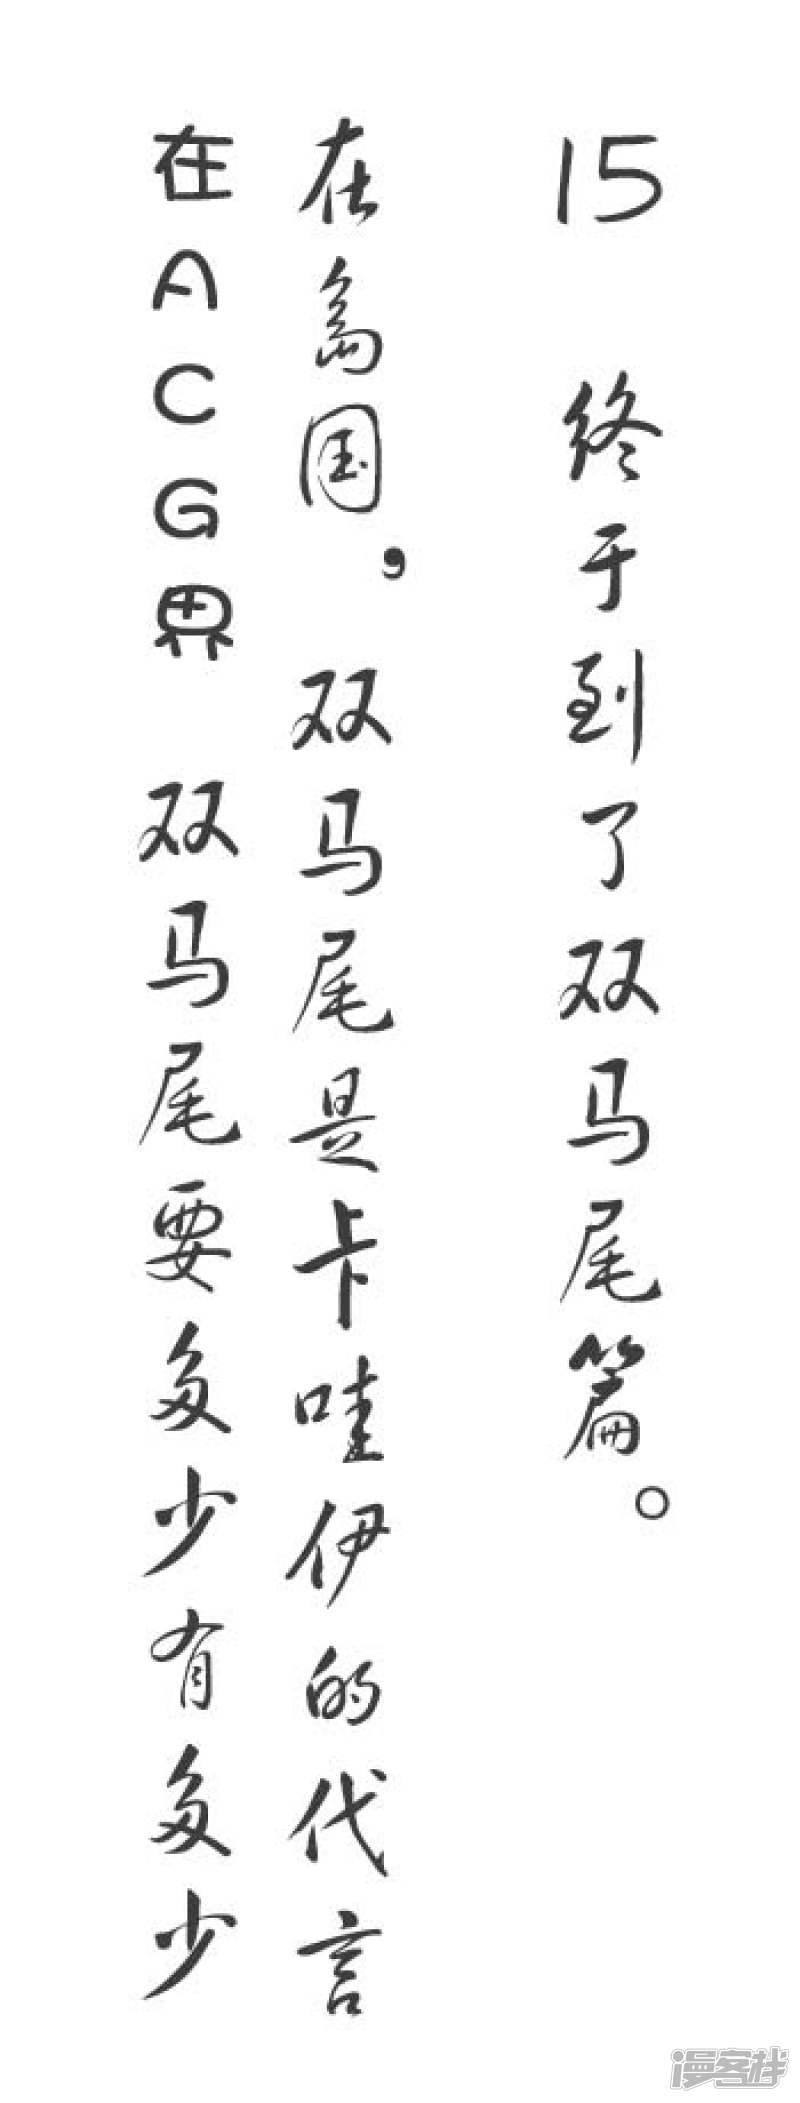 15 终于到了双马尾篇。
在岛国，双马尾是卡哇伊的代言
在ACG界 双马尾要多少有多少
漫客栈